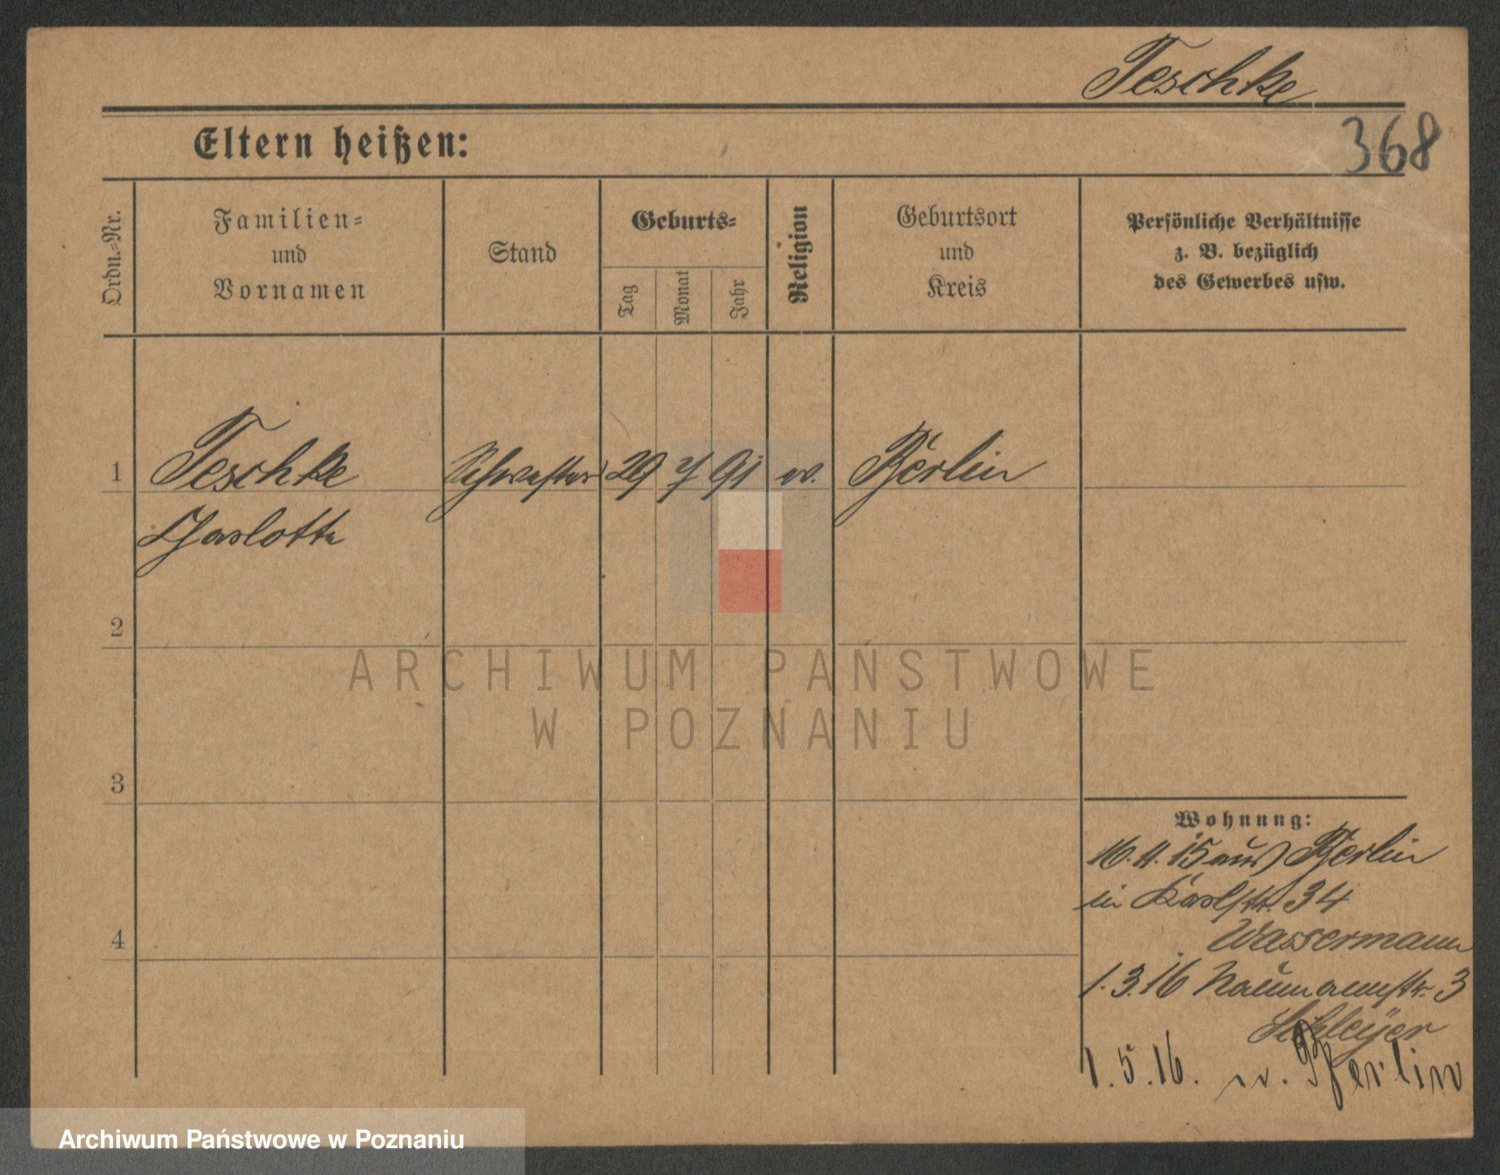 Teschke
368
Eltern heißen:
Ordn.=Nr.
Familien=
und
Vornamen
Stand
Geburts=
Tag
Monat
Jahr
Religion
Geburtsort
und
Kreis
Persönliche Verhältnisse
z. B. bezüglich
des Gewerbes usw.
1 Teschke Schwester 29 7 91 ev. Berlin
Charlotte
2
3
4
Wohnung:
16.4.15 aus Berlin
in Karlstr. 34
Wassermann
1.3.16 Naumannstr. 3
Schleyer
1.5.16. n. Berlin
ARCHIWUM PAŃSTWOWE
W POZNANIU
Archiwum Państwowe w Poznaniu